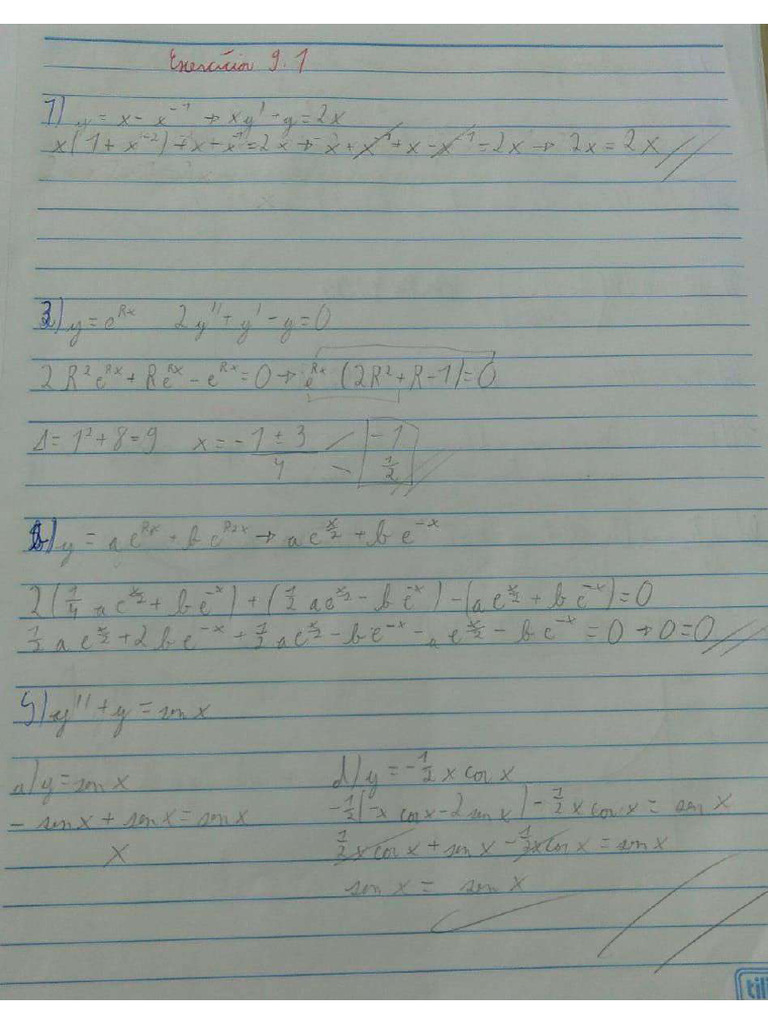 Exercícios 9.1
1) y = x - x⁻¹ → xy' + y = 2x
x(1 + x⁻²) + x - x⁻¹ = 2x → x + x⁻¹ + x - x⁻¹ = 2x → 2x = 2x
3) y = e^{Rx} 2y'' + y' - y = 0
2R²e^{Rx} + Re^{Rx} - e^{Rx} = 0 → e^{Rx} (2R² + R - 1) = 0
Δ = 1² + 8 = 9 x = \frac{-1 ± 3}{4} -1
\frac{1}{2}
b) y = ae^{Rx} + be^{R2x} → ae^{\frac{x}{2}} + be^{-x}
2(\frac{1}{4} ae^{\frac{x}{2}} + be^{-x}) + (\frac{1}{2} ae^{\frac{x}{2}} - be^{-x}) - (ae^{\frac{x}{2}} + be^{-x}) = 0
\frac{1}{2} ae^{\frac{x}{2}} + 2be^{-x} + \frac{1}{2} ae^{\frac{x}{2}} - be^{-x} - ae^{\frac{x}{2}} - be^{-x} = 0 → 0 = 0
5) y'' + y = sen x
a) y = sen x
- sen x + sen x = sen x
X
d) y = -\frac{1}{2} x cos x
-\frac{1}{2}(-x cos x - 2 sen x) - \frac{1}{2} x cos x = sen x
\frac{1}{2} x cos x + sen x - \frac{1}{2} x cos x = sen x
sen x = sen x
tili